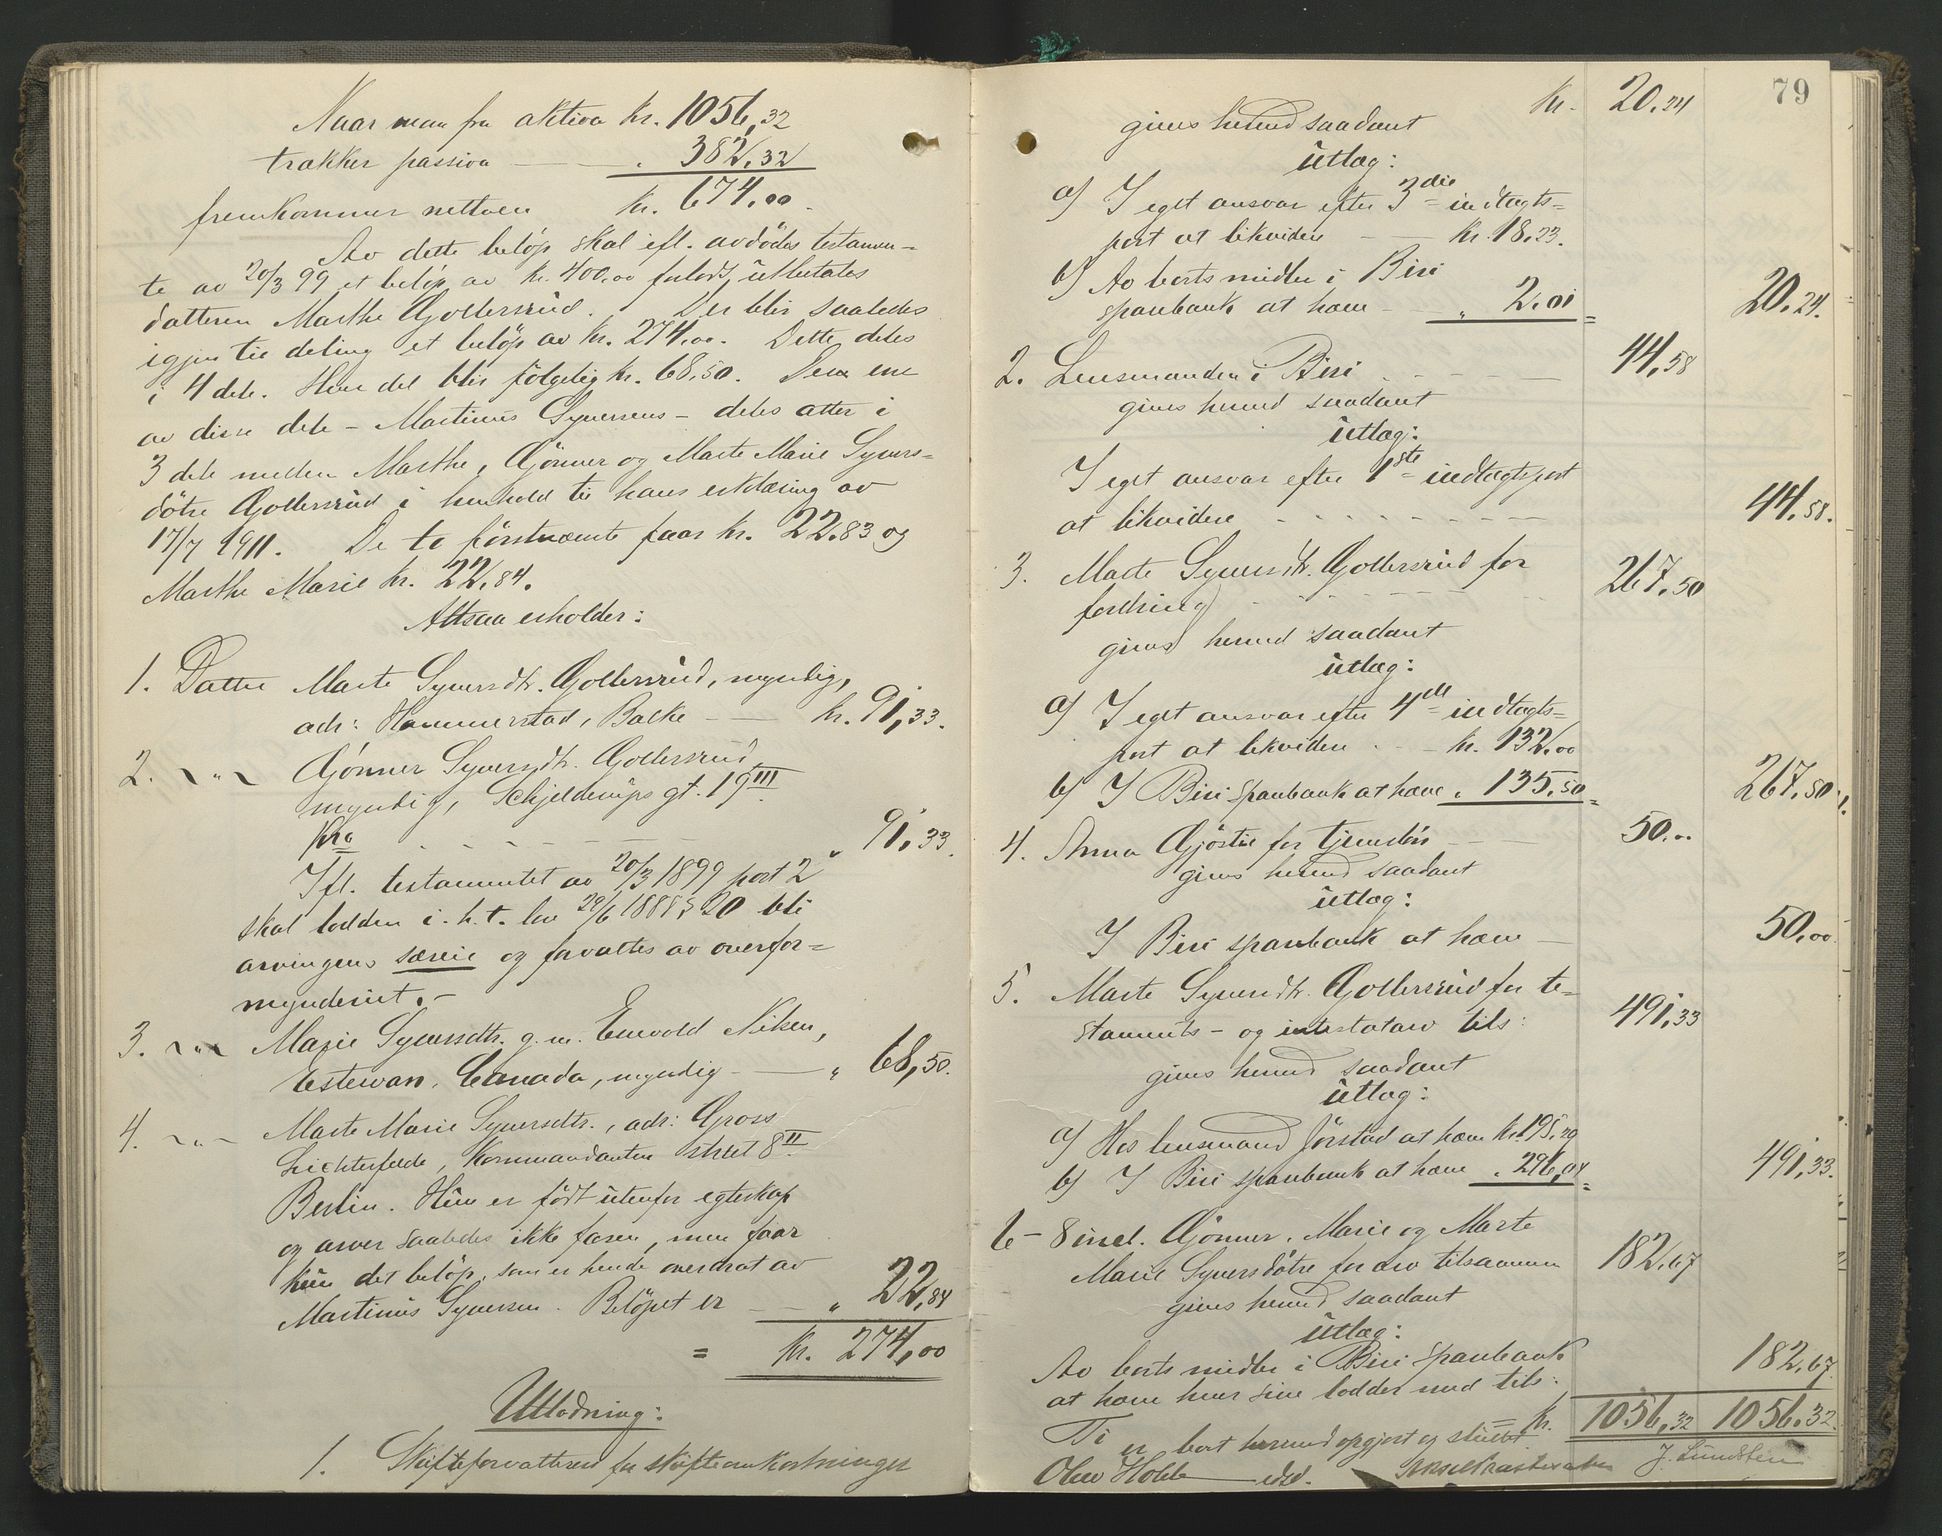 Naar man fra aktiva kr. 1056,32
trækker passiva — . 382,32
fremkommer nettoen kr. 674,00.
Av dette beløp skal ifl. avdødes testamen-
te av 20/3 99 et beløp av kr. 400,00 forlods utbetales
datteren Marthe Gollersrud. Der blir saaledes
igjen til deling et beløp av kr. 274,00. Dette deles
i 4 dele. Hver del blir følgelig kr. 68,50. Den ene
av disse dele – Martinus Syversens – deles atter i
3 dele mellem Marthe, Gjønner og Marte Marie Syvers=
døtre Gollersrud i henhold til hans erklæring av
17/7 1911. De to førstnævnte faar kr. 22,83 og
Marthe Marie kr. 22,84.
Altsaa erholder:
1. Datter Marte Syversdtr. Gollersrud, myndig,
adr: Hammerstad, Balke — kr. 91,33.
2. ~"~ Gjønner Syversdtr. Gollersrud
myndig, Schjelderups gt. 19III
Kra — " 91,33.
Ifl. testamentet av 20/3 1899 post 2
skal lodden i h. t. lov 29/6 1888 § 20 bli
arvingens særeie og forvaltes av overfor=
mynderiet. –
3. ~"~ Marie Syversdtr. g. m. Enevold Nilsen,
Estevan, Canada, myndig — " 68,50.
4. ~"~ Marte Marie Syversdtr., adr: Gross
Lichterfelde, Kommandanten street 8II
Berlin. Hun er født utenfor egteskap
og arver saaledes ikke faren, men faar
kun det beløp, som er hende overdrat av
Martinus Syversen. Beløpet er — " 22,84
= kr. 274,00
Utlodning:
1. Skifteforvalteren for skifteomkostninger
79
kr. 20,24
gives herved saadant
utlæg:
a) I eget ansvar efter 3die indtægts=
post at likvidere — kr. 18,23.
b) Av boets midler i Biri
sparebank at hæve — " 2,01 = 20,24.
2. Lensmanden i Biri — 44,58
gives herved saadant
utlæg:
I eget ansvar efter 1ste indtægtspost
at likvidere — 44,58.
3. Marte Syversdtr. Gollersrud for
fordring — 267,50
gives herved saadant
utlæg:
a) I eget ansvar efter 4de indtægts=
post at likvidere — kr. 132,00
b) I Biri sparebank at hæve " 135,50 = 267,50
4. Anna Gjøstie for tjenerløn — 50,00
gives herved saadant
utlæg:
I Biri sparebank at hæve — 50,00
5. Marte Syversdtr. Gollersrud for te=
staments- og intestatarv tils: 491,33
gives herved saadant
utlæg:
a) Hos lensmand Jørstad at hæve kr. 195,29
b) I Biri sparebank at hæve " 296,04 = 491,33.
6 – 8 incl. Gjønner, Marie og Marte
Marie Syversdøtre for arv tilsammen 182,67
gives herved saadant
utlæg:
Av boets midler i Biri sparebank
at hæve hver sine lodder med tils: 182,67.
= kr. 1056,32 1056,32
Ti er boet herved opgjort og sluttet.
Olav Holde — edsv. J. Lundsten